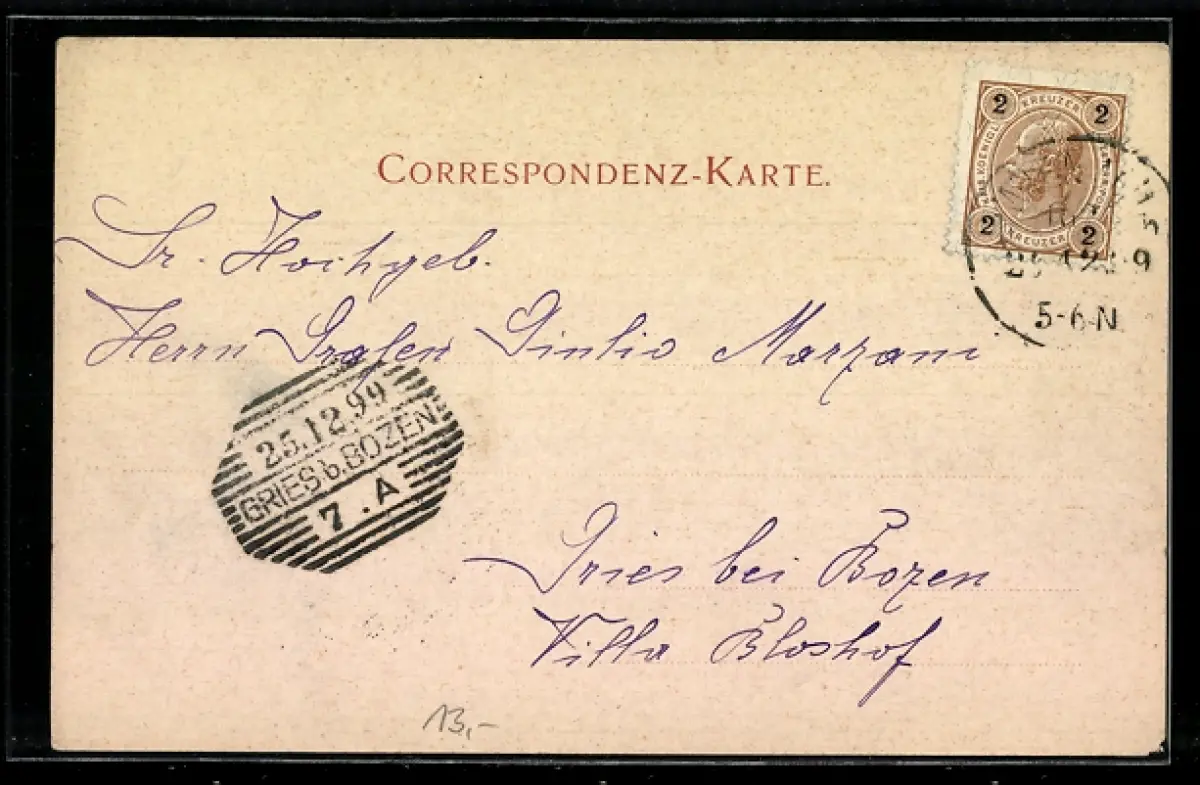 CORRESPONDENZ-KARTE.
2 KREUZER 2
2 KREUZER 2
5-6 N
Sr. Hochgeb.
Herrn Grafen Giulio Marzani
25.12.99
GRIES b. BOZEN
7.A
Gries bei Bozen
Villa Bloshof
13,-